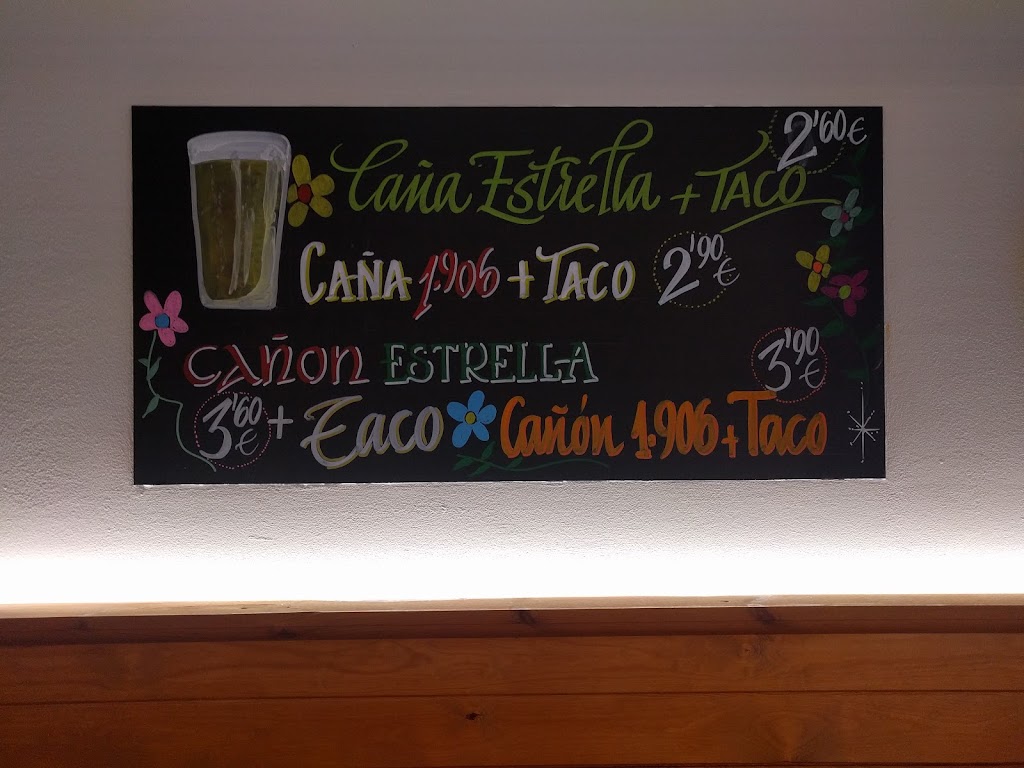 Caña Estrella + TACO 2'60€
CAÑA 1.906 + TACO 2'90€
CAÑON ESTRELLA
3'60€ + Taco
3'90€
Cañón 1.906 + Taco